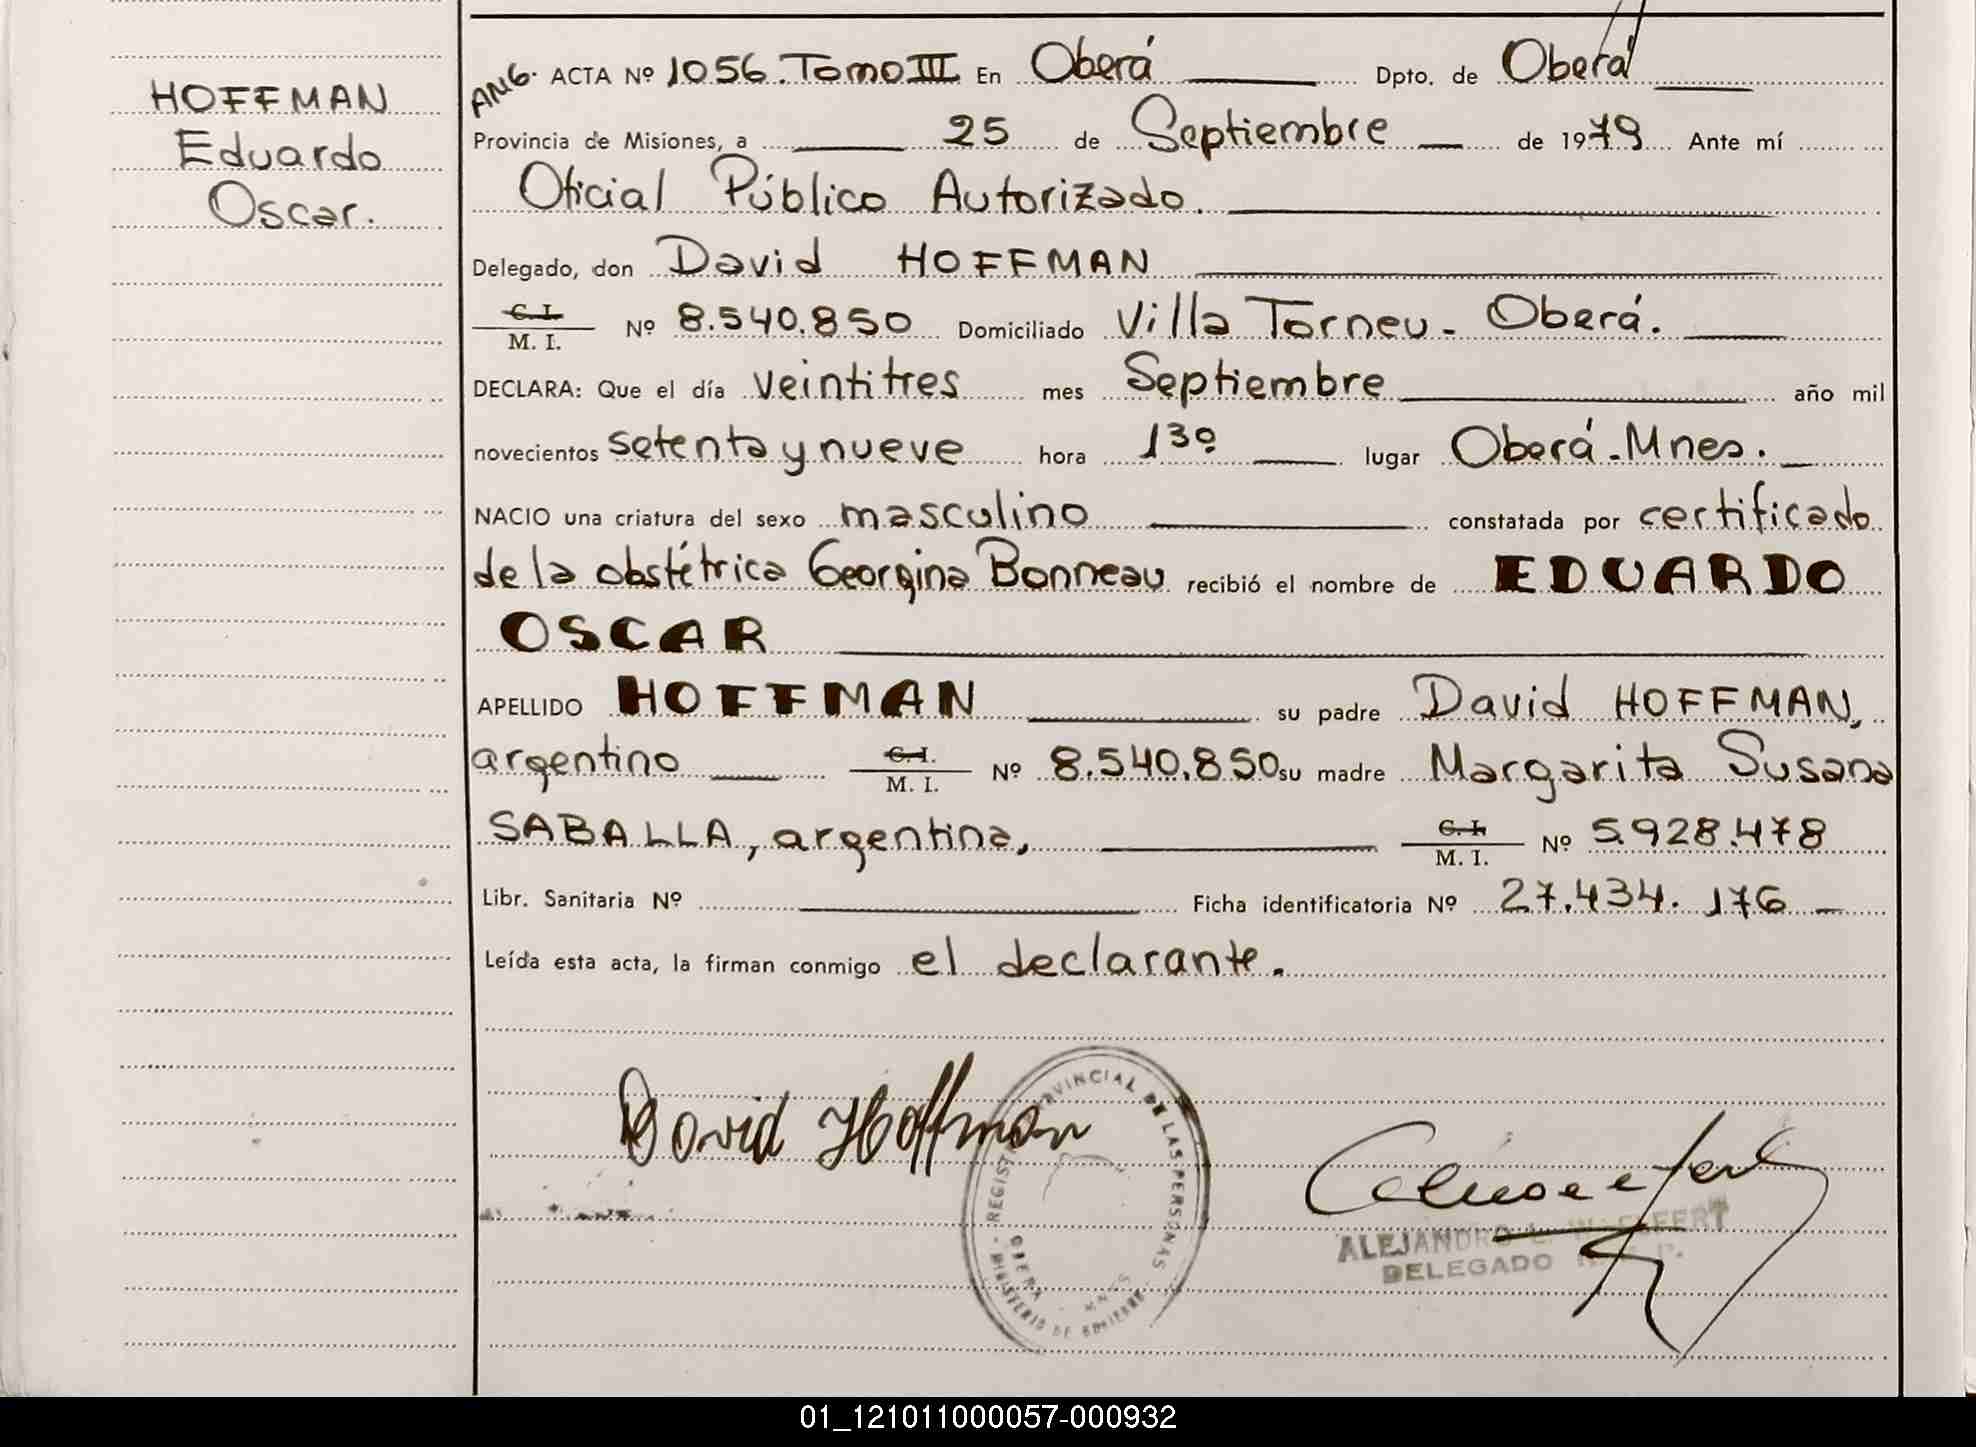 HOFFMAN
Eduardo
Oscar.
ANG. ACTA Nº 1056. Tomo III En Oberá Dpto. de Oberá
Provincia de Misiones, a 25 de Septiembre de 1979 Ante mí
Oficial Público Autorizado.
Delegado, don David HOFFMAN
C. I.
M. I. Nº 8.540.850 Domiciliado Villa Torneu - Oberá.
DECLARA: Que el día veintitres mes Septiembre año mil
novecientos setenta y nueve hora 13º lugar Oberá - Mnes.
NACIO una criatura del sexo masculino constatada por certificado
de la obstétrica Georgina Bonneau recibió el nombre de EDUARDO
OSCAR
APELLIDO HOFFMAN su padre David HOFFMAN,
argentino C. I. M. I. Nº 8.540.850 su madre Margarita Susana
SABALLA, argentina, C. I. M. I. Nº 5.928.478
Libr. Sanitaria Nº Ficha identificatoria Nº 27.434.176
Leída esta acta, la firman conmigo el declarante.
David Hoffman
REGISTRO PROVINCIAL DE LAS PERSONAS
OBERA MNES
MINISTERIO DE GOBIERNO
ALEJANDRO L.
DELEGADO
01_121011000057-000932